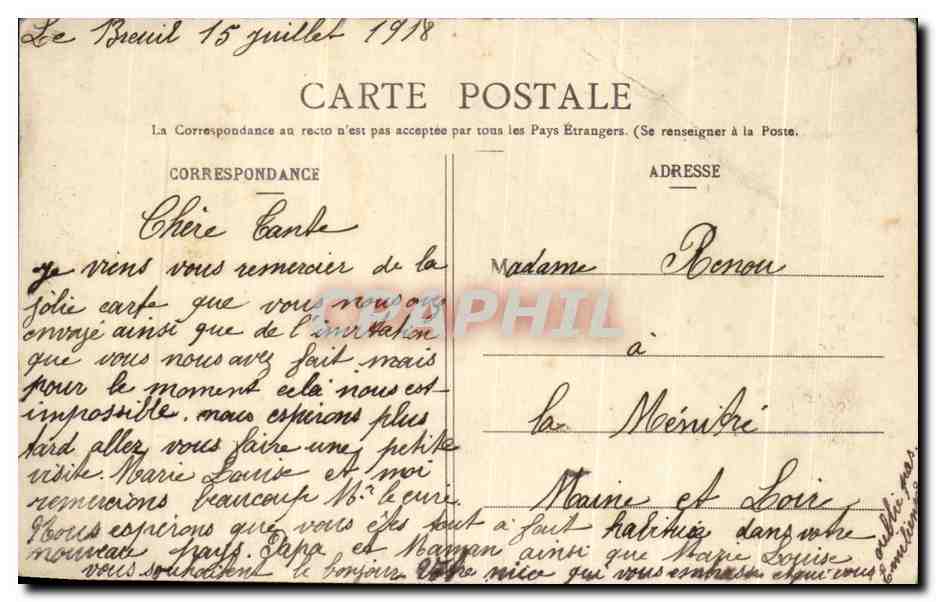 Le Breuil 15 juillet 1918
CARTE POSTALE
La Correspondance au recto n'est pas acceptée par tous les Pays Étrangers. (Se renseigner à la Poste.
CORRESPONDANCE
Chère Tante
Je viens vous remercier de la
jolie carte que vous nous avez
envoyé ainsi que de l'invitation
que vous nous avez fait mais
pour le moment cela nous est
impossible. nous esperons plus
tard allez vous faire une petite
visite. Marie Louise et moi
remercions beaucoup Mr le curé.
Nous esperons que vous êtes tout à fait habitué dans votre
nouveau pays. Papa et Maman ainsi que Marie Louise
vous souhaitent le bonjour Votre nièce qui vous embrasse et qui vous
Emilienne
ADRESSE
Madame Renou
à
la Ménitré
Maine et Loire
CPAPHIL